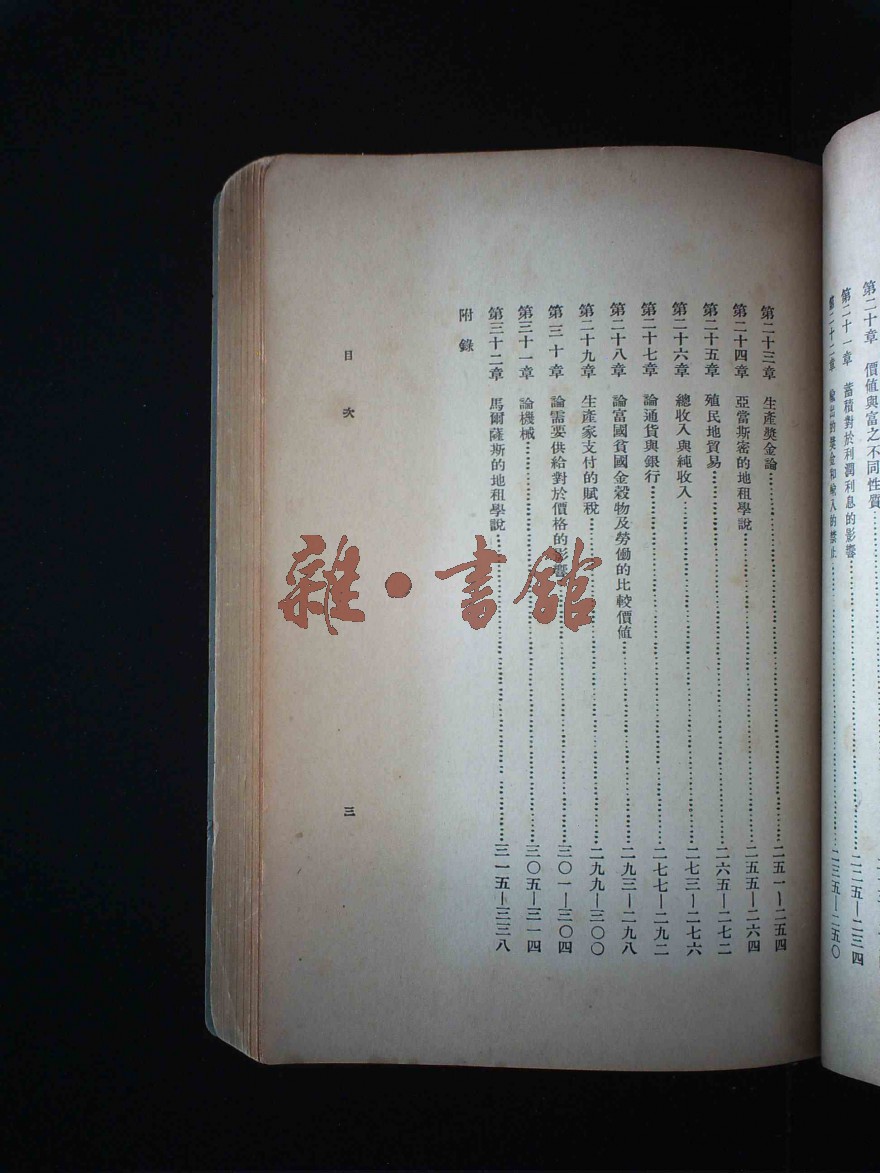 第二十章　價値與富之不同性質
第二十一章　蓄積對於利潤利息的影響……二二五—二三四
第二十二章　輸出的獎金和輸入的禁止……二三五—二五〇
第二十三章　生產獎金論……二五一—二五四
第二十四章　亞當斯密的地租學說……二五五—二六四
第二十五章　殖民地貿易……二六五—二七二
第二十六章　總收入與純收入……二七三—二七六
第二十七章　論通貨與銀行……二七七—二九二
第二十八章　論富國貧國金穀物及勞働的比較價値……二九三—二九八
第二十九章　生產家支付的賦稅……二九九—三〇〇
第三十章　論需要供給對於價格的影響……三〇一—三〇四
第三十一章　論機械……三〇五—三一四
第三十二章　馬爾薩斯的地租學說……三一五—三三八
附錄
目次
三
雜·書館